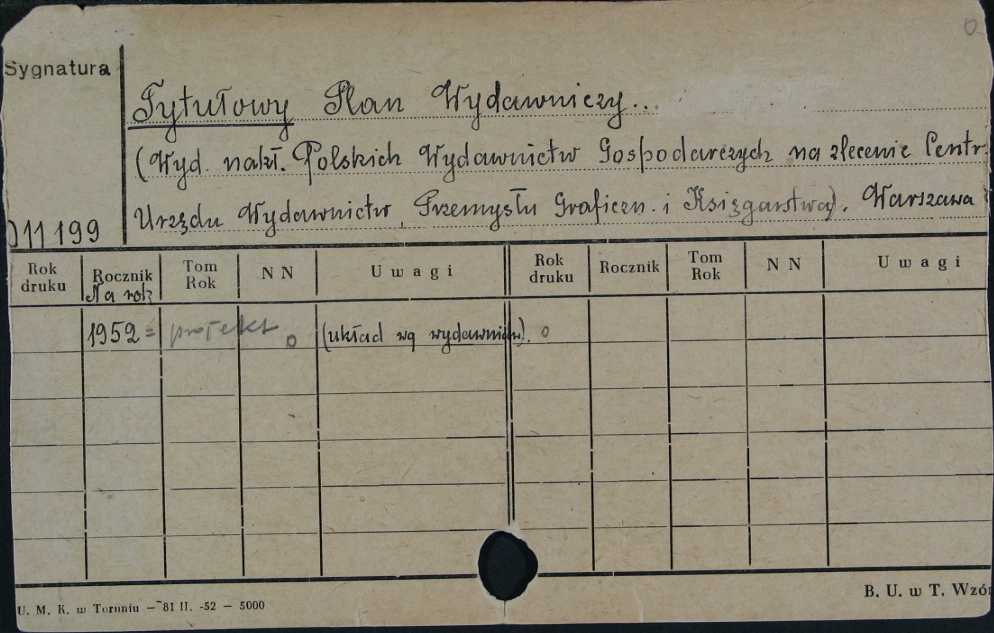 Sygnatura
Tytułowy Plan Wydawniczy...
(Wyd. nakł. Polskich Wydawnictw Gospodarczych na zlecenie Centr.
Urzędu Wydawnictw, Przemysłu Graficzn. i Księgarstwa). Warszawa
011199
Rok druku Rocznik Tom Rok N N Uwagi Rok druku Rocznik Tom Rok N N Uwagi
Na rok
1952 = projekt o (układ wg wydawnictw). o
U. M. K. w Toruniu — 81 II. -52 — 5000
B. U. w T. Wzór